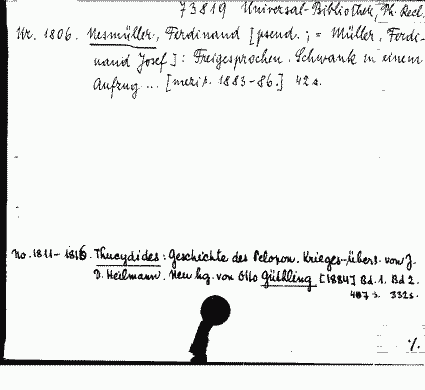 73819 Universal-Bibliothek, Ph. Recl.
Nr. 1806. Nesmüller, Ferdinand [pseud.; = Müller, Ferdi-
nand Josef]: Freigesprochen. Schwank in einem
Aufzug ... [zw. 1883-86.] 42 s.
No. 1811-1816. Thucydides: Geschichte des Pelopon. Krieges. Übers. von J.
D. Heilmann. Neu hg. von Otto Güthling [1884] Bd. 1. Bd 2.
487 s. 332 s.